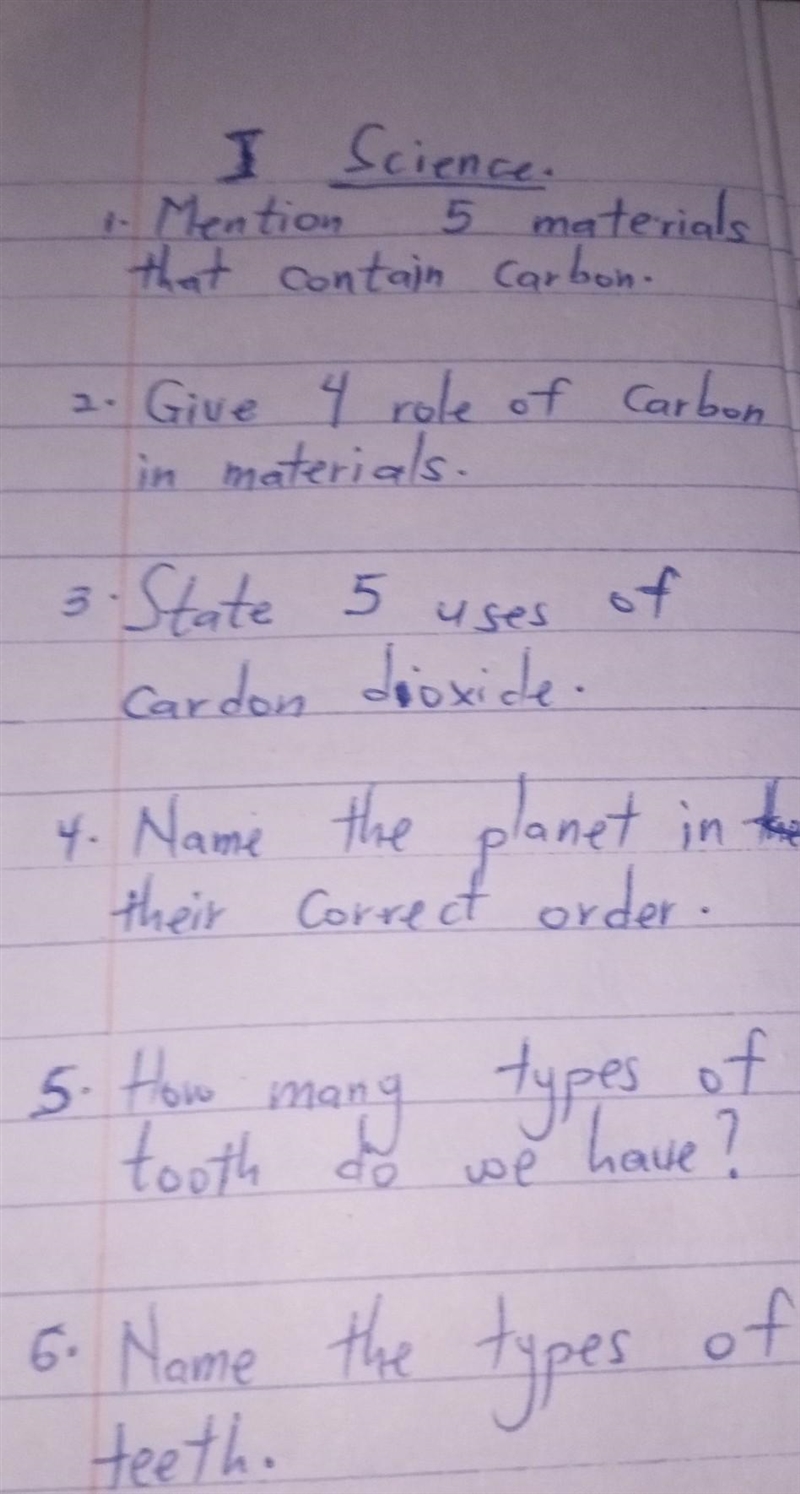 I Science.
1. Mention 5 materials
that contain carbon.
2. Give 4 role of carbon
in materials.
3. State 5 uses of
cardon dioxide.
4. Name the planet in the
their correct order.
5. How many types of
tooth do we have?
6. Name the types of
teeth.